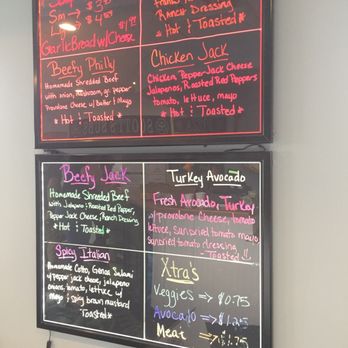 Sm → $3.
Lg →
$1.99
Garlic Bread w/Cheese
Ranch Dressing
* Hot & Toasted *
Beefy Philly
Homemade Shredded Beef
with onion, mushroom, g. pepper
Provolone Cheese w/ Butter & Mayo
* Hot & Toasted *
Chicken Jack
Chicken, Pepper-Jack Cheese
Jalapenos, Roasted Red Peppers
tomato, lettuce, mayo
* Hot & Toasted *
Beefy Jack
Homemade Shredded Beef
with Jalapeno & Roasted Red Pepper,
Pepper Jack Cheese, Ranch Dressing
* Hot & Toasted *
Turkey Avocado
Fresh Avocado, Turkey
w/ provolone cheese, tomato
lettuce, sundried tomato mayo
Sundried tomato dressing
- Toasted !!
Spicy Italian
Homemade Cotto, Genoa Salami
w/ pepper jack cheese, jalapeno
onions, tomato, lettuce w/
mayo & spicy brown mustard
Toasted *
Xtra's
Veggies => $0.75
Avocado => $1.25
Meat => $1.75